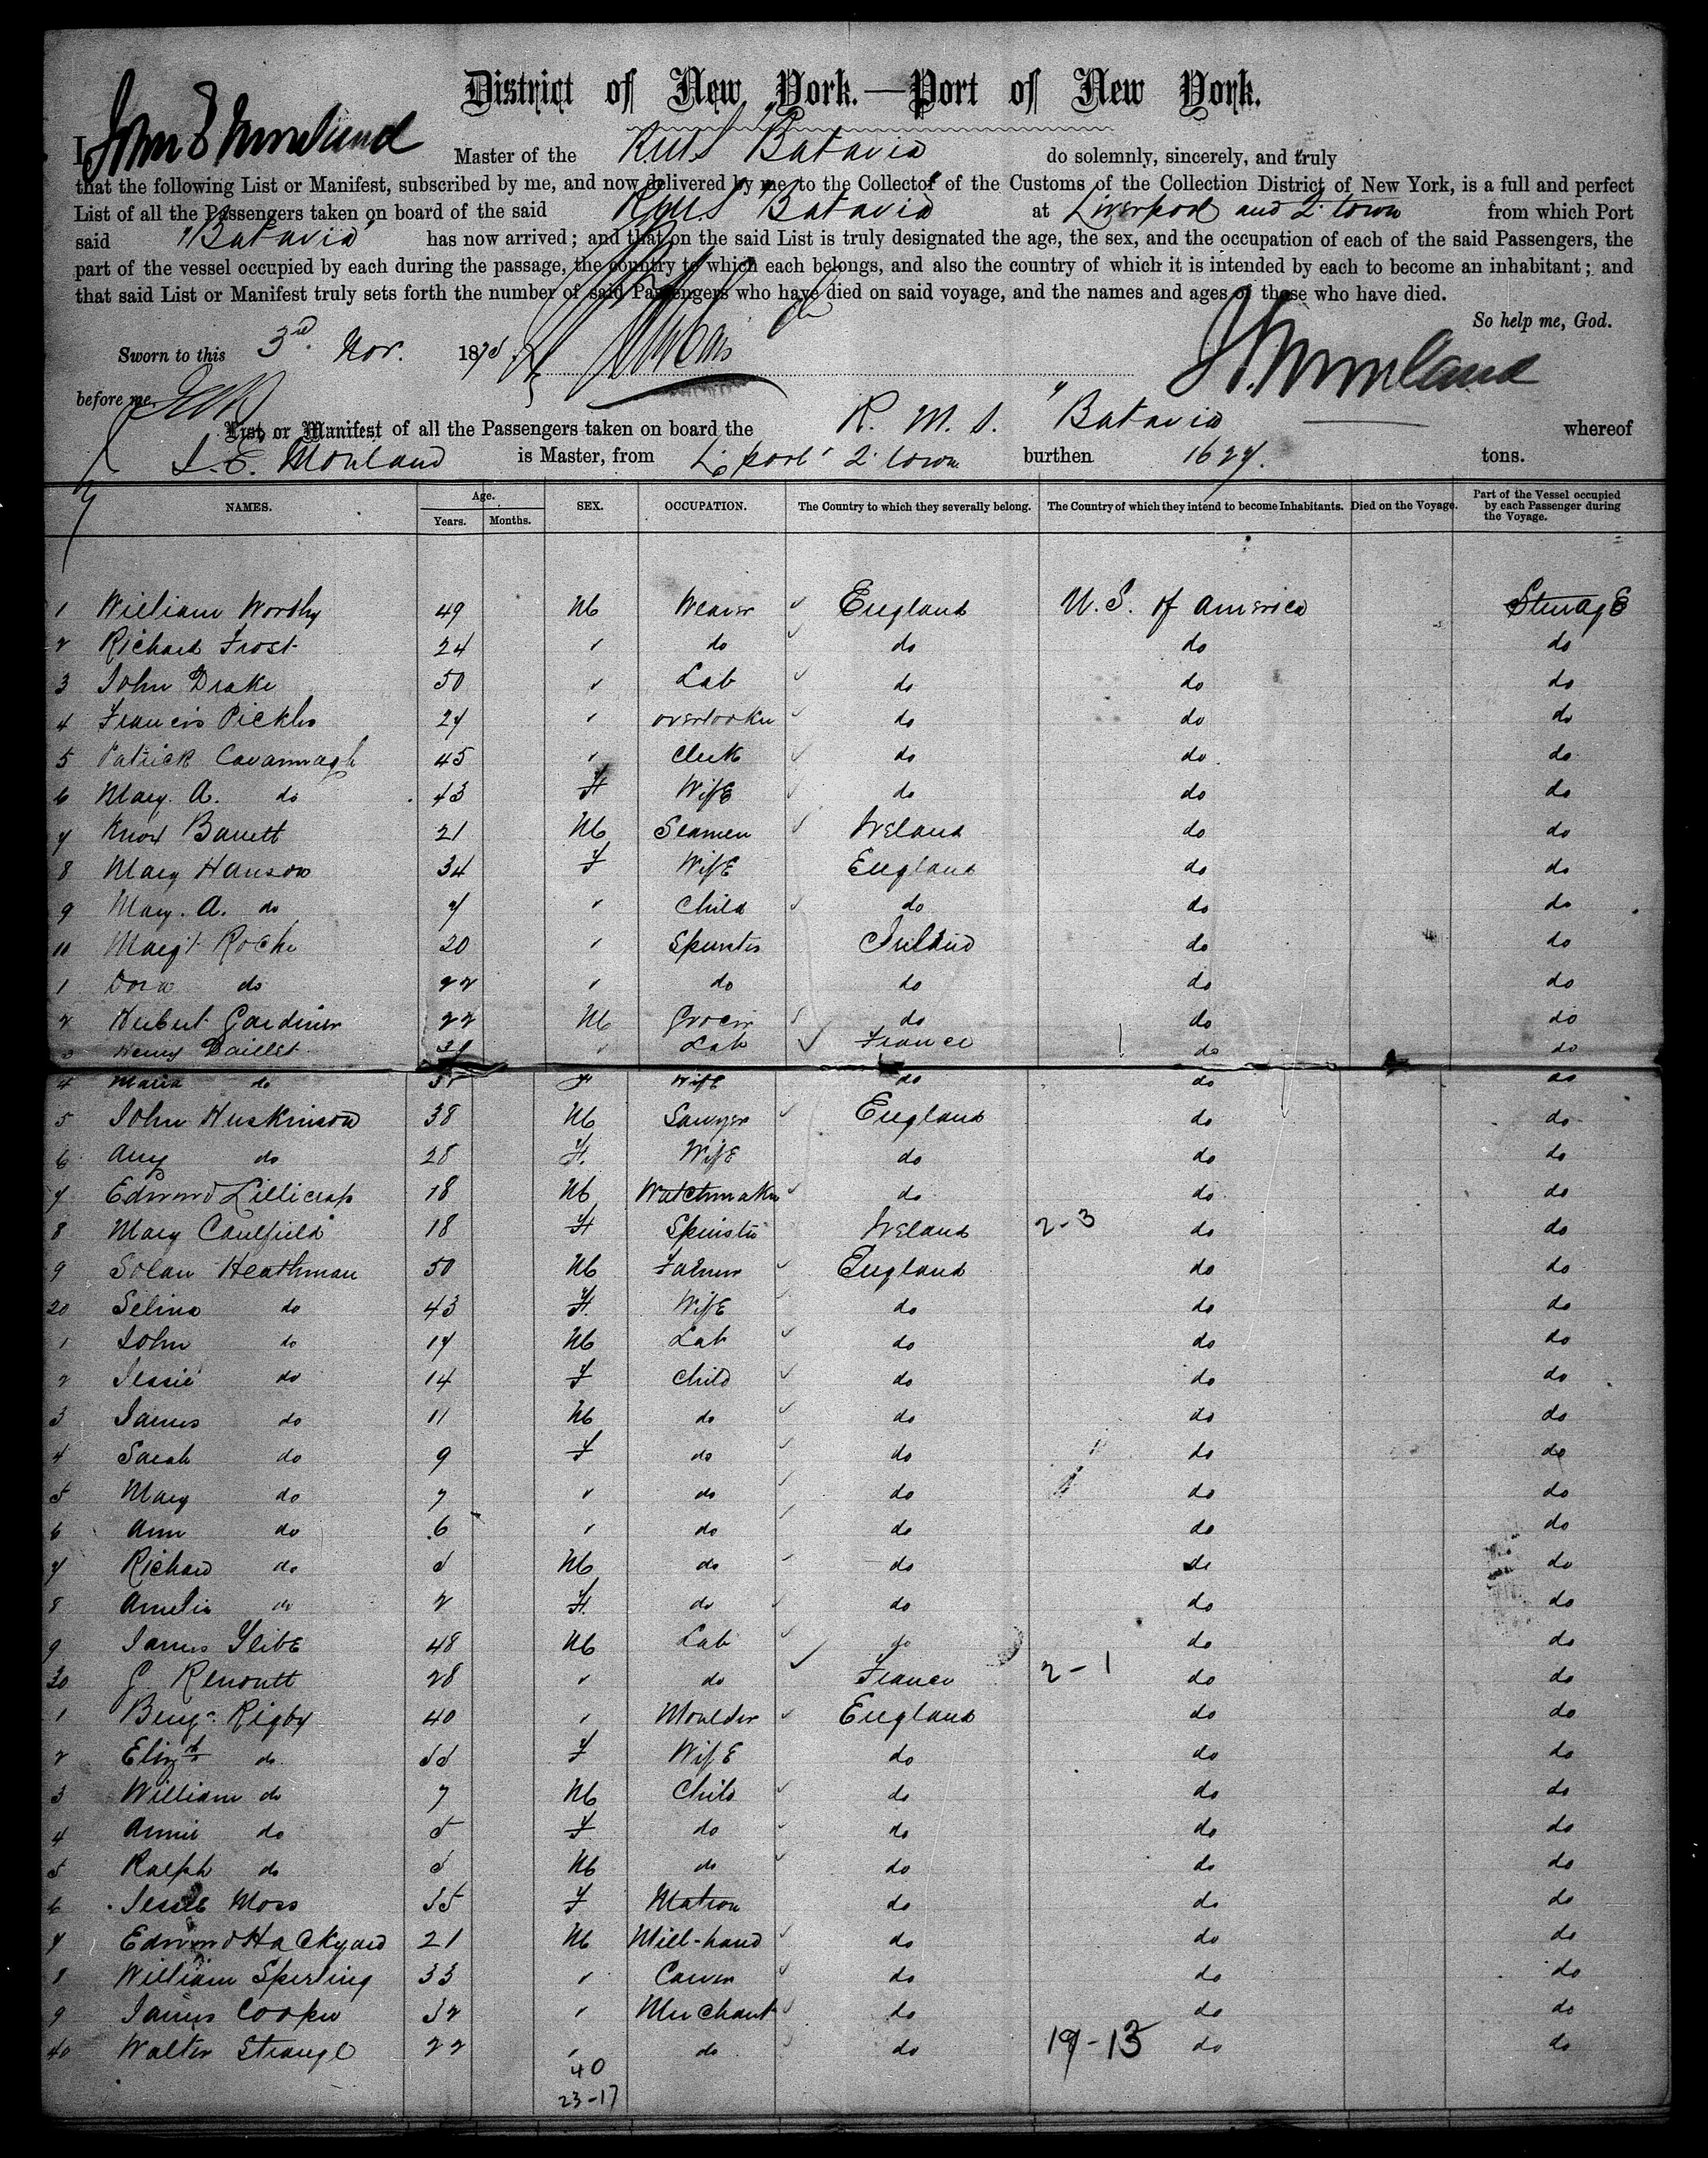 District of New York.—Port of New York.
I, John E Moreland Master of the RMS "Batavia do solemnly, sincerely, and truly
that the following List or Manifest, subscribed by me, and now delivered by me to the Collector of the Customs of the Collection District of New York, is a full and perfect
List of all the Passengers taken on board of the said RMS Batavia at Liverpool and Q. town from which Port
said "Batavia" has now arrived; and that on the said List is truly designated the age, the sex, and the occupation of each of the said Passengers, the
part of the vessel occupied by each during the passage, the country to which each belongs, and also the country of which it is intended by each to become an inhabitant; and
that said List or Manifest truly sets forth the number of said Passengers who have died on said voyage, and the names and ages of those who have died.
So help me, God.
Sworn to this 3rd. Nov. 187
before me,
List or Manifest of all the Passengers taken on board the R. M. S. "Batavia whereof
J. E. Moreland is Master, from L'pool Q. town burthen 1627. tons.
NAMES. Age. Years. Months. SEX. OCCUPATION. The Country to which they severally belong. The Country of which they intend to become Inhabitants. Died on the Voyage. Part of the Vessel occupied by each Passenger during the Voyage.
1 William Worthy 49 M Weaver England U.S. of America Steerage
2 Richard Frost 24 " do do do do
3 John Drake 50 " Lab do do do
4 Francis Pickles 27 " overlooker do do do
5 Patrick Cavannagh 45 " Clerk do do do
6 Mary. A. do 43 F Wife do do do
7 Knox Barrett 21 M Seamen Ireland do do
8 Mary Hanson 34 F Wife England do do
9 Mary. A. do 7 " Child do do do
10 Margt Roche 20 " Spinster Ireland do do
1 Dora do 22 " do do do do
2 Herbert Gardiner 22 M Grocer do do do
3 Henry Daillet 31 " Lab France do do
4 Maria do F Wife do do do
5 John Huskinson 38 M Sawyer England do do
6 Amy do 28 F. Wife do do do
7 Edward Lillicrap 18 M Watchmaker do do do
8 Mary Caulfield 18 F Spinster Ireland 2-3 do do
9 Solan Heathman 50 M Farmer England do do
20 Selina do 43 F. Wife do do do
1 John do 17 M Lab do do do
2 Jessie do 14 F Child do do do
3 James do 11 M do do do do
4 Sarah do 9 F do do do do
5 Mary do 7 " do do do do
6 Ann do 6 " do do do do
7 Richard do M do do do do
8 Amelia do 2 F. do do do do
9 James 48 M Lab do do do
30 G. Renoutt 28 " do France 2-1 do do
1 Benjn Rigby 40 " Moulder England do do
2 Elizth do F Wife do do do
3 William do 7 M Child do do do
4 Annie do 5 F do do do do
5 Ralph do M do do do do
6 Jessie Moss 35 F Matron do do do
7 Edward Hackyard 21 M Mill-hand do do do
8 William Sperling 33 " Carver do do do
9 James Cooper 32 " Merchant do do do
40 Walter Strange 22 " do do 19-13 do do
40
23-17